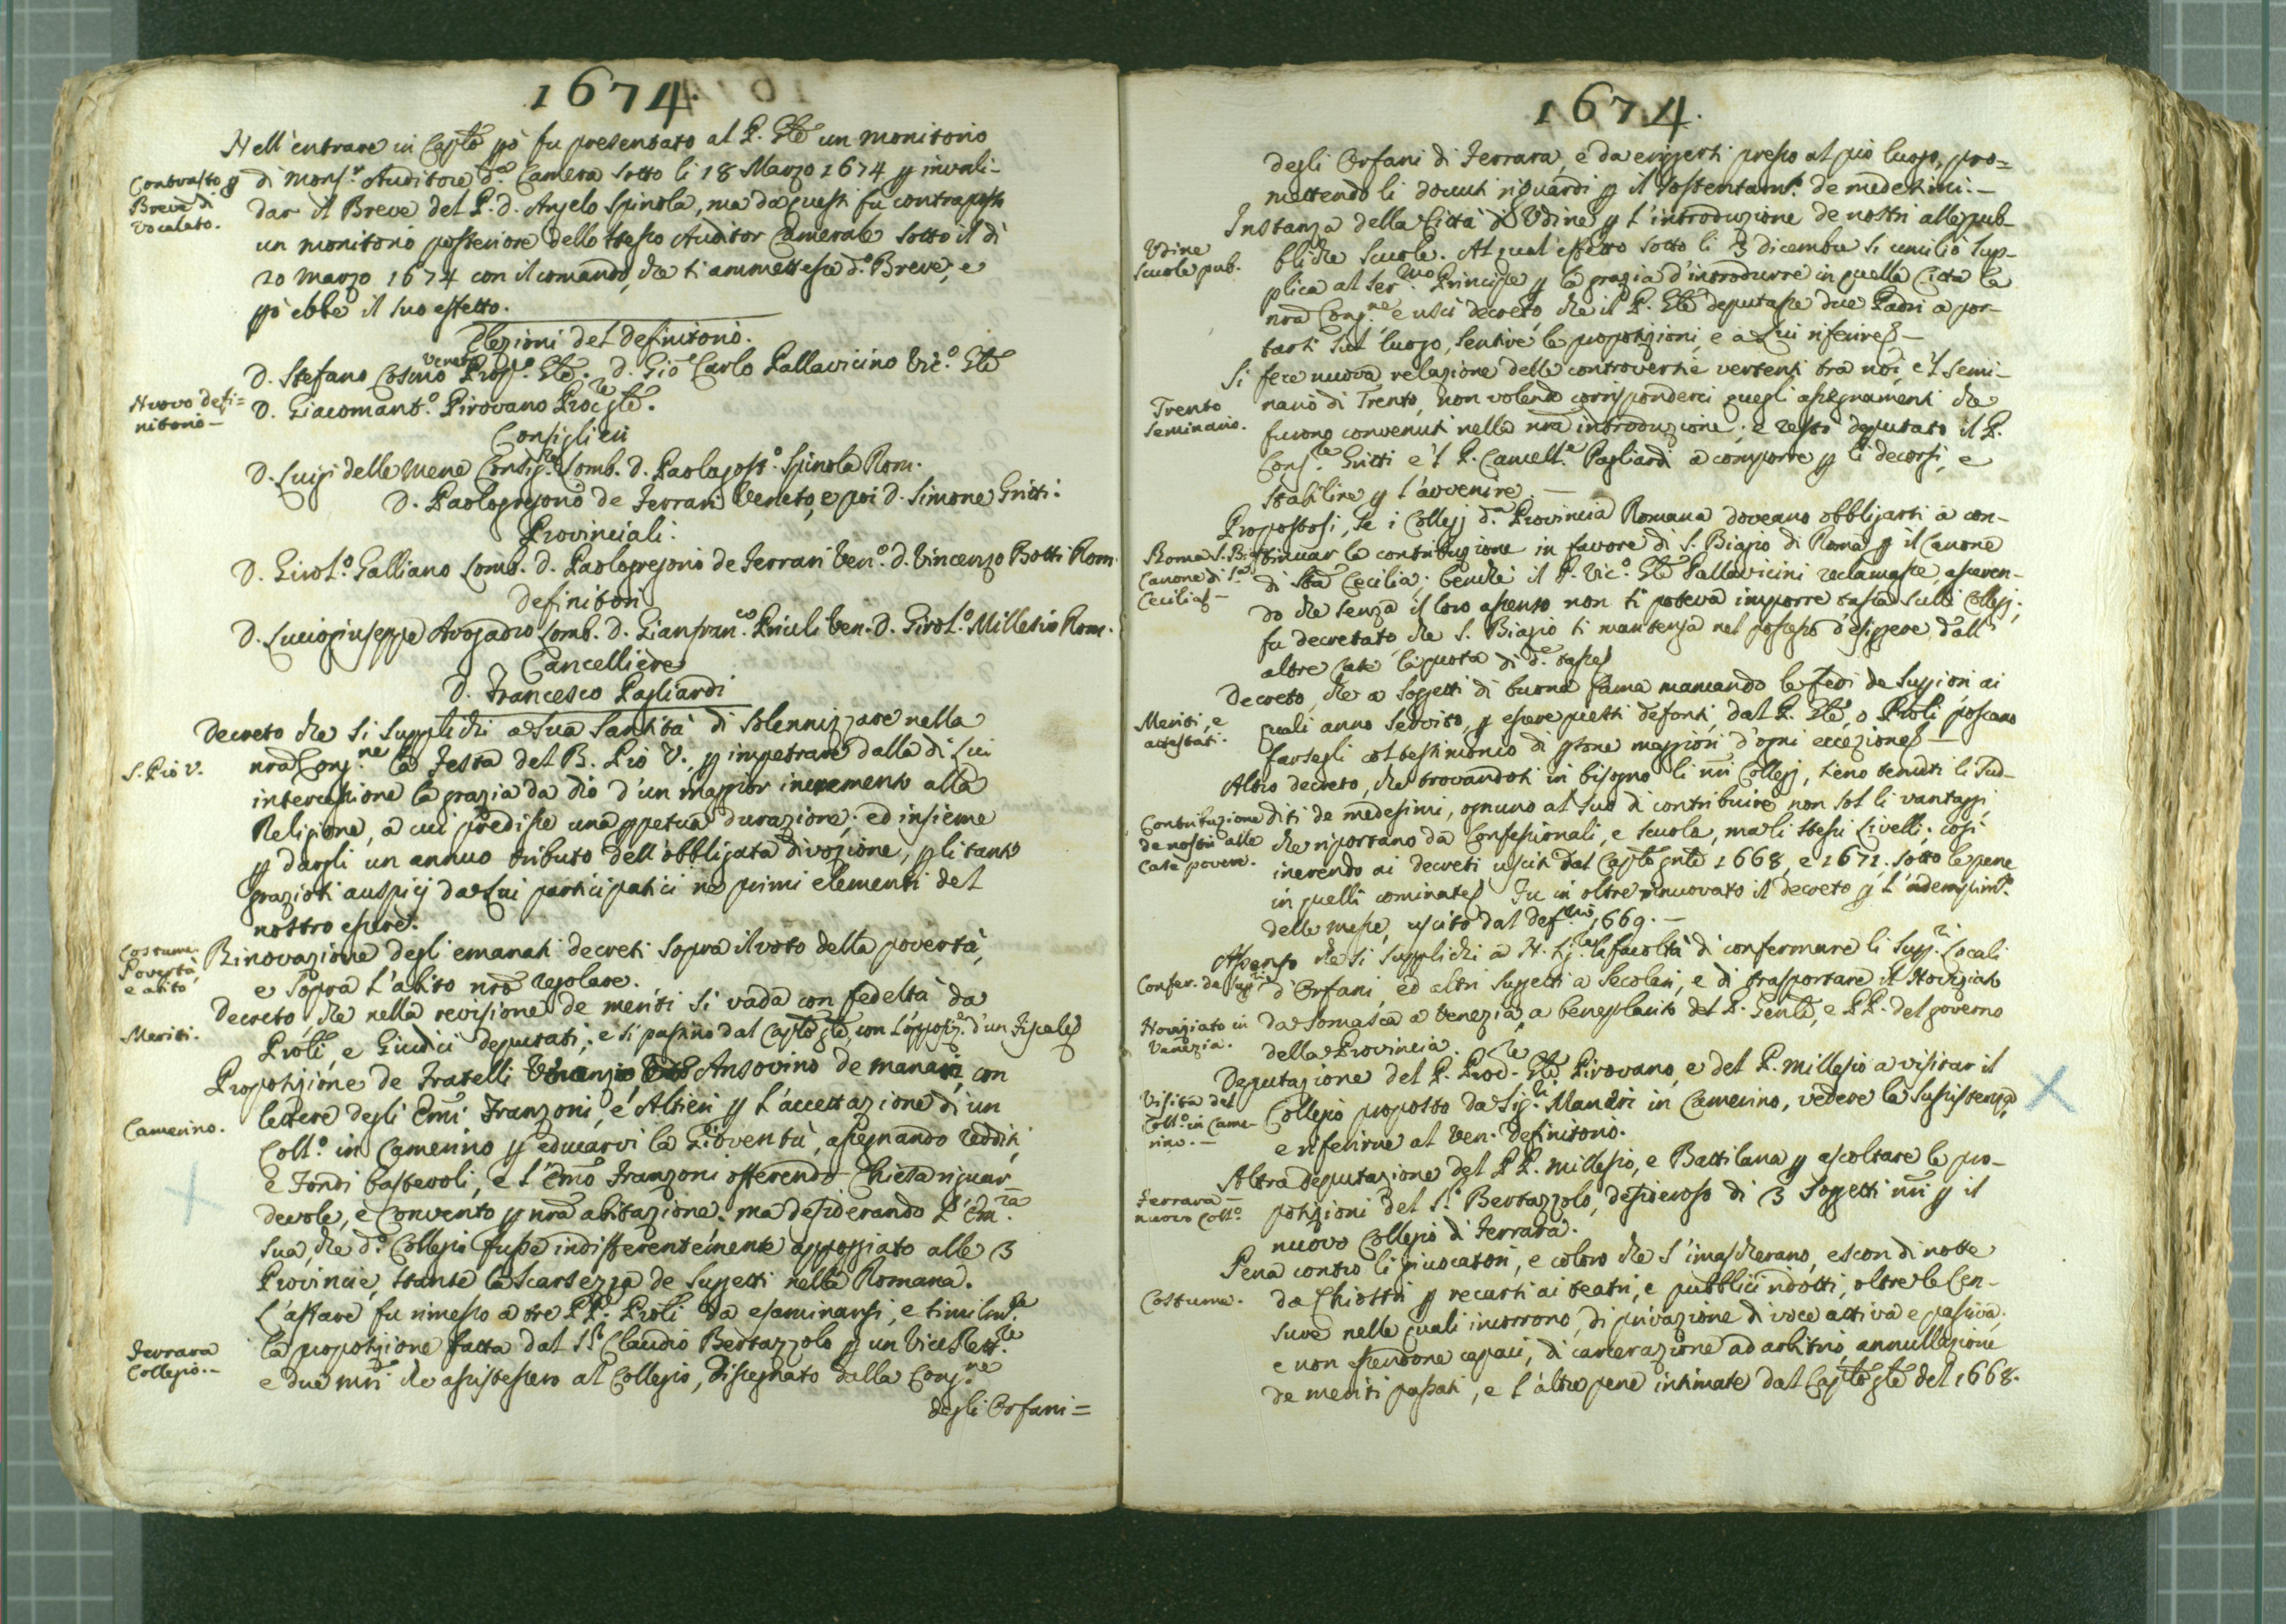 1674.
Nell'entrare in Caplō pò fu presentato al P. Gle un monitorio
Contrasto p
Breve di
Vocalato.
di Mons.r Auditore d.a Camera sotto li 18 Marzo 1674 p invali-
dar il Breve del P. d. Angelo Spinola, ma da questi fu contraposto
un monitorio posteriore dello stesso Auditor Camerale sotto il dì
20 Marzo 1674 con il comando, che si ammettesse d.o Breve, e
pò ebbe il suo effetto.
Elezioni del Definitorio.
D. Stefano Cosmo Veneto Prop.o Gle. D. Gio Carlo Pallavicino Vic.o Gle
Nuovo defi=
nitorio-
D. Giacomant.o Pirovano Proc.re Gle.
Consiglieri
D. Luigi della Mene Consig.re Lomb. D. Paolagost.o Spinola Rom.
D. Paologregorio de Ferrari Veneto, e poi D. Simone Gritti.
Provinciali.
D. Girol.o Galliano Lomb. D. Paologregorio de Ferrari Ven.o D. Vincenzo Botti Rom.
Definitori
D. Luciogiuseppe Avogadro Lomb. D. Gianfran.co Priuli Ven. D. Girol.o Millesio Rom.
Cancelliere
D. Francesco Pagliardi
Decreto che si supplichi a Sua Santità di solennizzare nella
S. Pio V.
nrā Cong.ne la Festa del B. Pio V., p impetrare dalla di Lui
intercessione la grazia da Dio d'un maggior incremento alla
Religione, a cui predisse una ppetua durazione; ed insieme
p dargli un annuo tributo dell'obbligata divozione, p li tanti
graziosi auspicj da Lui participatici ne primi elementi del
nostro essere.
Costume.
Povertà,
e abito
Rinovazione degli emanati decreti sopra il voto della povertà,
e sopra l'abito nrō regolare.
Decreto, che nella revisione de meriti si vada con fedeltà da
Meriti.
Proli, e Giudici deputati; e si passino dal Caplō gle, con l'opposiz.e d'un Fiscale
Proposizione de Fratelli Ansovino de Manari, con
Camerino.
lettere degli Emi Franzoni, e Altieri p l'accettazione di un
Coll.o in Camerino p educarvi la Gioventù, assegnando redditi,
e Fondi bastevoli, e l'Emo Franzoni offerendo Chiesa riguar-
devole, e Convento p nrā abitazione. ma desiderando l'Em.za
sua, che d.o Collegio fusse indifferentemente appoggiato alle 3
Provincie, stante la scarsezza de Suggetti nella Romana.
L'affare fu rimesso a tre PP. Proli da esaminarsi, e similm.te
Ferrara
Collegio.-
la proposizione fatta dal Sr Claudio Bertazzolo p un ViceRett.re
e due nrī che assistessero al Collegio, disegnato dalla Cong.ne
degli Orfani=
1674.
degli Orfani di Ferrara, e da erigersi presso al pio luogo, pro=
mettendo li dovuti riguardi p il sostentam.to de medesimi.-
Instanza della Città di Udine p l'introduzione de nostri alle pub-
Udine
scuole pub.
bliche Scuole. Al qual effetto sotto li 3 dicembre si umiliò sup-
plica al Ser.mo Principe p la grazia d'introdurre in quella Citta la
nrā Cong.ne e uscì decreto che il P. Gle deputasse due Padri a por-
tarsi sul luogo, sentire le proposizioni, e a Lui riferire-
Si fece nuova relazione delle controversie vertenti tra noi, e'l Semi-
Trento
Seminario.
nario di Trento, non volendo corrisponderci quegli assegnamenti che
furono convenuti nella nrā introduzione; e restò deputato il P.
Cons.re Gritti e'l P. Cancell.e Pagliardi a comporre p li decorsi, e
stabilire p l'avvenire.-
Propostosi, se i Collegj d.a Provincia Romana doveano obbligarsi a con-
Roma S. Biagio
Canone di S.ta
Cecilia-
tinuar la contribuzione in favore di S. Biagio di Roma p il Canone
di Sta Cecilia; benchè il P. Vic.o Gle Pallavicini reclamasse, asseren-
do che senza il loro assenso non si poteva imporre tassa sulli Collegj;
fu decretato che S. Biagio si mantenga nel possesso d'esiggere dall'
altre Case la quota di d.e tasse
Decreto, che a soggetti di buona fama mancando le Fedi de Superiori ai
Meriti, e
attestati.
quali anno servito, p essere questi defonti, dal P. Gle, o Proli possano
farsegli col testimonio di psone maggiori d'ogni eccezione-
Altro decreto, che trovandosi in bisogno li nrī Collegj, sieno tenuti li Sud-
Contribuzione
de nostri alle
case povere.
diti de medesimi, ognuno al suo di contribuire non sol li vantaggi,
che riportano da Confessionali, e Scuola, ma li stessi Livelli; così
inerendo ai decreti usciti dal Caplō gnle 1668, e 1671. sotto le pene
in quelli cominate. Fu in oltre rinuovato il decreto p l'adempim.to
delle messe, uscito dal Def.rio 1669.-
Assenso che si supplichi a N. Sig.re la facoltà di confermare li Sup.ri Locali
Confer. de Sup.ri
d'Orfani, ed altri suggetti a Secolari, e di trasportare il Noviziato
Noviziato in
Venezia.
da Somasca a Venezia, a beneplacito del P. Genle, e PP. del governo
della Provincia.
Deputazione del P. Proc.re Gle Pirovano, e del P. Millesio a visitar il
Visita del
Coll.o in Came-
rino.-
Collegio proposto da Sig.ri Manari in Camerino, vedere la sussistenza,
e riferirne al Ven. Definitorio.
Altra deputazione del PP. Millesio, e Battilana p ascoltare le pro-
Ferrara-
nuovo Coll.o
posizioni del S.r Bertazzolo, desideroso di 3 soggetti nrī p il
nuovo Collegio di Ferrara.
Pena contro li giuocatori, e coloro che s'imascherano, escon di notte
Costume.
da Chiostri p recarsi ai teatri, e pubblici ridotti, oltre le Cen-
sure nelle quali incorrono, di privazione di voce attiva e passiva,
e non essendone capaci, di carcerazione ad arbitrio, annullazione
de meriti passati, e l'altre pene intimate dal Caplō gle del 1668.